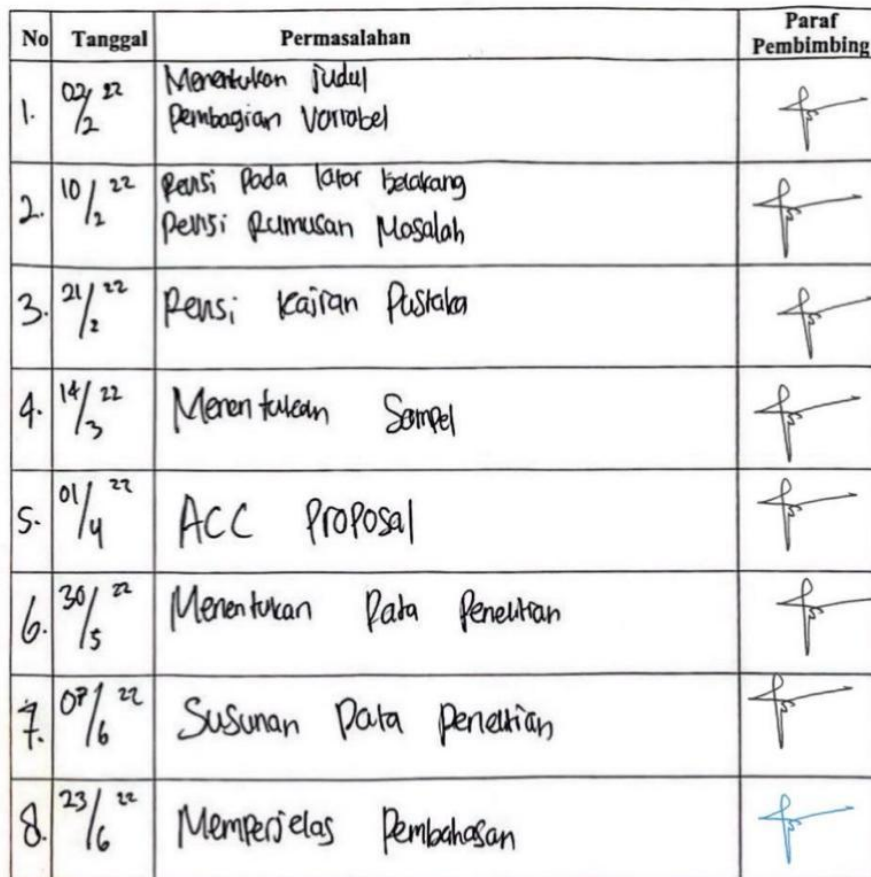 No Tanggal Permasalahan Paraf Pembimbing
1. 02/2 22 Menentukan judul
Pembagian Variabel
2. 10/2 22 Revisi Pada latar belakang
Revisi Rumusan Masalah
3. 21/2 22 Revisi Kajian Pustaka
4. 14/3 22 Menentukan Sampel
5. 01/4 22 ACC Proposal
6. 30/5 22 Menentukan Data Penelitian
7. 07/6 22 Susunan Data Penelitian
8. 23/6 22 Memperjelas Pembahasan